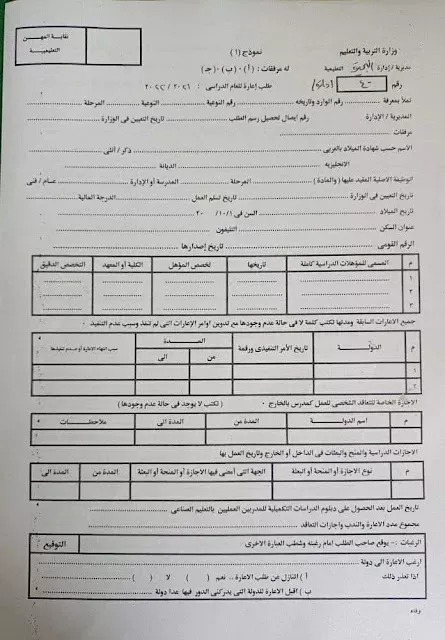 نقابة المهن
التعليمية
وزارة التربية والتعليم
نموذج (١)
مديرية / إدارة البحيرة التعليمية
له مرفقات : (أ) - (ب) - (جـ)
رقم
طلب إعارة للعام الدراسى : ٢٠٢١ / ٢٠٢٢
تملأ بمعرفة رقم الوارد وتاريخه رقم النوعية النوعية المرحلة
المديرية / الإدارة رقم ايصال تحصيل رسم الطلب تاريخ التعيين فى الوزارة
مرفقات
الاسم حسب شهادة الميلاد بالعربى ذكر / أنثى
الانجليزيه الديانة
الوظيفة الاصلية المقيد عليها (والمادة) المرحلة المدرسة أو الإدارة عام / فنى
تاريخ التعيين فى الوزارة تاريخ تسلم العمل الدرجة الحالية
تاريخ الميلاد السن فى ١٠/١ / ٢٠
عنوان السكن التليفون
الرقم القومى تاريخ إصدارها
م المسمى للمؤهلات الدراسية كاملة تاريخها تخصص المؤهل الكلية أو المعهد التخصص الدقيق
١
٢
٣
جميع الاعارات السابقة ومدتها تكتب كلمة لا فى حالة عدم وجودها مع تدوين أوامر الإعارات التى لم تنفذ وسبب عدم التنفيذ
م الدولة تاريخ الأمر التنفيذى ورقمة المدة سبب انتهاء الاعارة أو عدم تنفيذها
من الى
١
٢
الاجازة الخاصة للتعاقد الشخصى للعمل كمدرس بالخارج (تكتب لا يوجد فى حالة عدم وجودها)
م اسم الدولة المدة من المدة الى ملاحظات
الاجازات الدراسية والمنح والبعثات فى الداخل أو الخارج وتاريخ العمل بها
م نوع الاجازة أو المنحة أو البعثة الجهة التى أمضى فيها الاجازة أو المنحة أو البعثة المدة من المدة الى
تاريخ العمل بعد الحصول على دبلوم الدراسات التكميلية للمدربين العمليين بالتعليم الصناعى
مجموع مدد الاعارة والندب واجازات التعاقد
الرغبات :- يوقع صاحب الطلب امام رغبته وشطب العبارة الاخرى التوقيع
ارغب الاعارة الى دولة
اذا تعذر ذلك أ ) التنازل عن طلب الاعارة .. نعم ( ) لا ( )
ب ) اقبل الاعارة للدولة التى يدركنى الدور فيها عدا دولة
وفاء